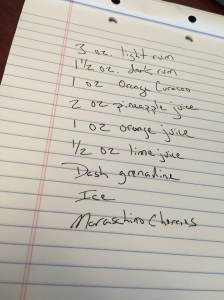 3 oz. light rum
1 1/2 oz. dark rum
1 oz Orange Curacao
2 oz pineapple juice
1 oz orange juice
1/2 oz lime juice
Dash grenadine
Ice
Maraschino Cherries